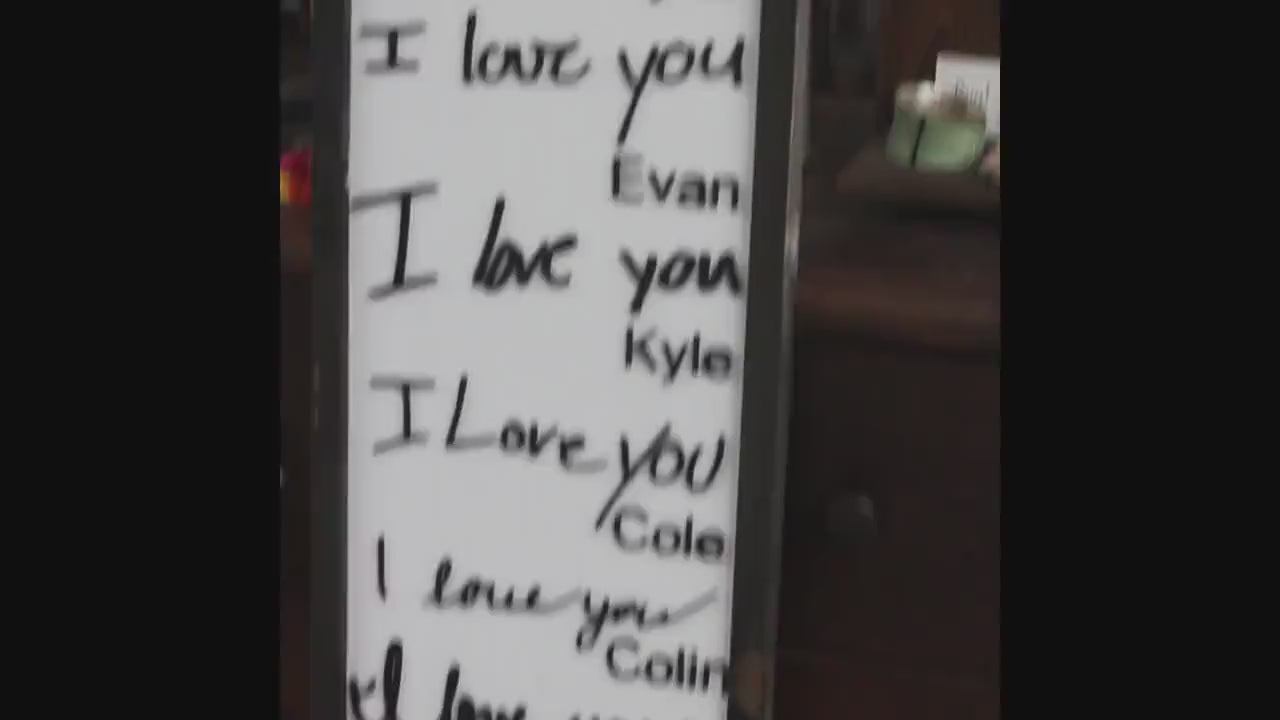 I love you
Evan
I love you
Kyle
I Love you
Cole
I love you
Colin
I love